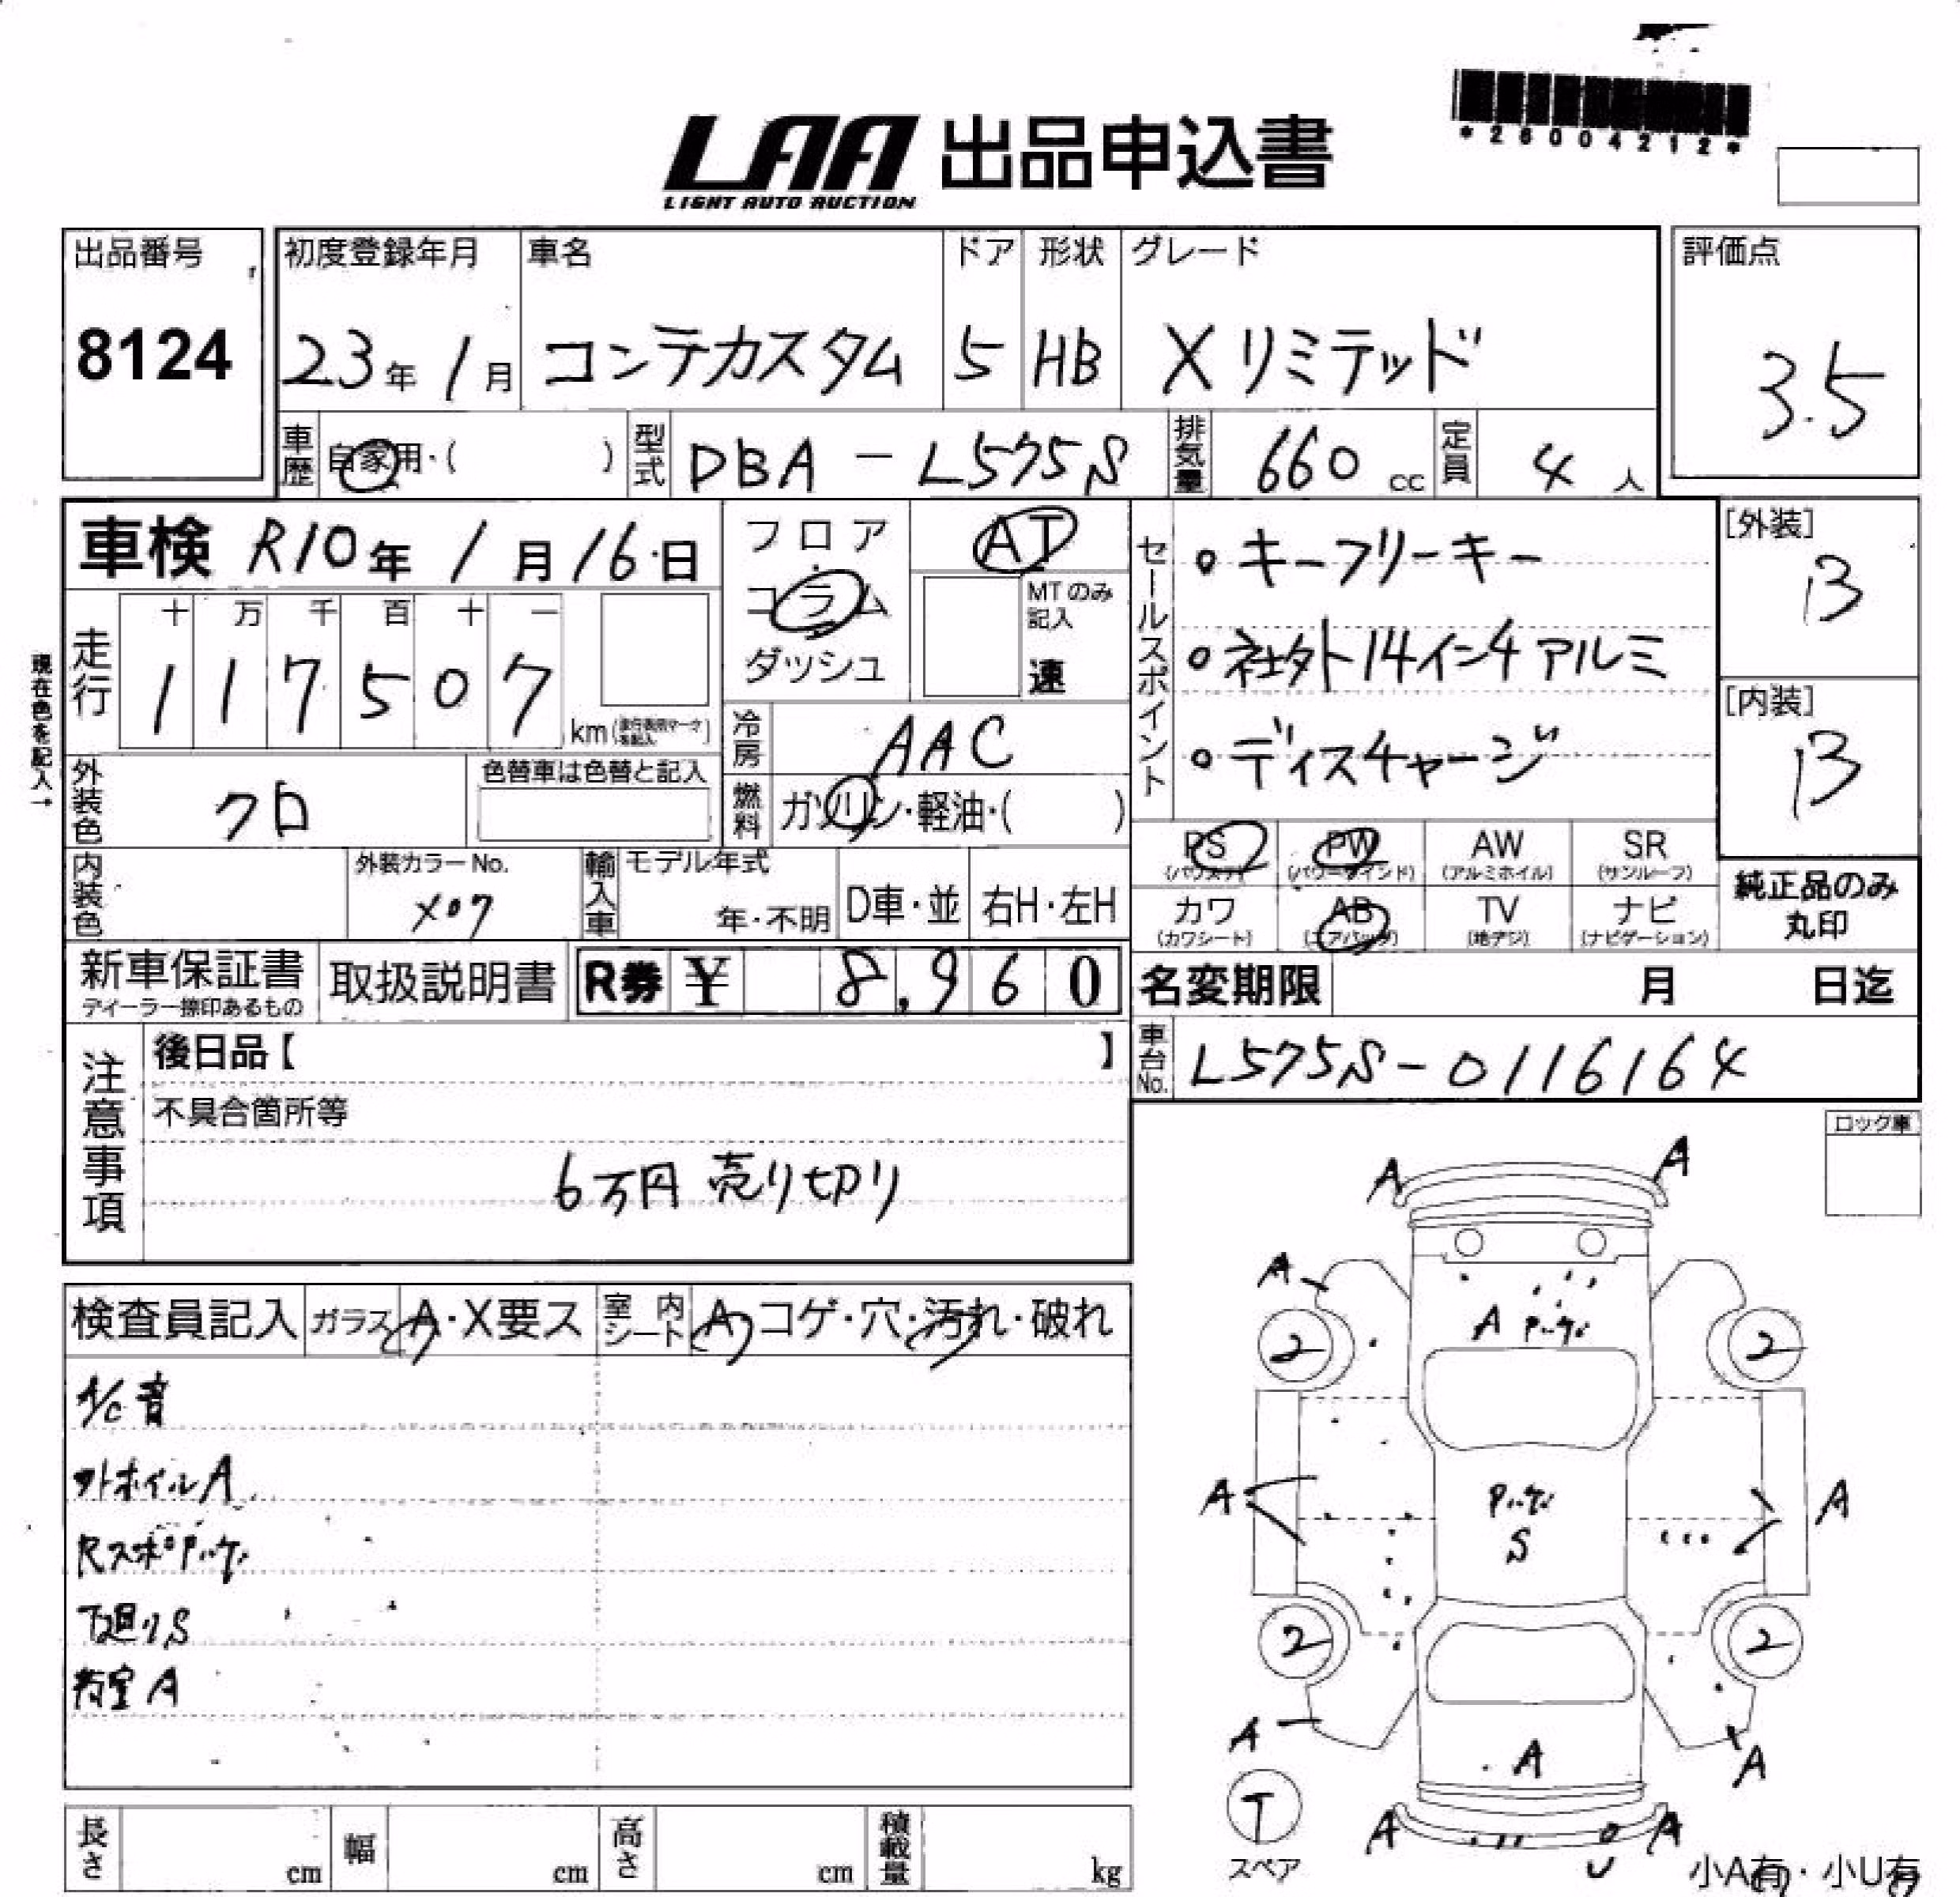 *26004212*
LAA 出品申込書
LIGHT AUTO AUCTION
出品番号
8124
初度登録年月
23年 1月
車名
コンテカスタム
ドア
5
形状
HB
グレード
Xリミテッド
評価点
3.5
車歴 自家用・( )
型式 DBA-L575S
排気量 660 cc
定員 4 人
車検 R10年 1月 16日
フロア
コラム
ダッシュ
AT
MTのみ
記入
速
セールスポイント
・キーフリーキー
・社外14インチアルミ
・ディスチャージ
[外装]
B
[内装]
B
現在色を記入→
走行
十 万 千 百 十 一
1 1 7 5 0 7
km
冷房 AAC
外装色 クロ
色替車は色替と記入
燃料 ガソリン・軽油・( )
PS AW SR
(パワステ) (アルミホイル) (サンルーフ)
PW
(パワーウインド)
カワ AB TV ナビ
(カワシート) (エアバッグ) (地デジ) (ナビゲーション)
純正品のみ
丸印
内装色
外装カラーNo.
X07
輸入車
モデル年式
年・不明
D車・並
右H・左H
新車保証書
ディーラー捺印あるもの
取扱説明書
R券 ¥ 8,960
名変期限 月 日迄
車台No. L575S-0116164
注意事項
後日品【 】
不具合箇所等
6万円 売り切り
ロック車
検査員記入
ガラス A・X要ス
室内シート A・コゲ・穴・汚れ・破れ
A/C音
外ホイルA
Rスポ
下廻りS
荷室A
A A
A
A
2 2
A A
S
2 2
A A
A
T
スペア
A A
U
小A有・小U有
長さ cm
幅 cm
高さ cm
積載量 kg